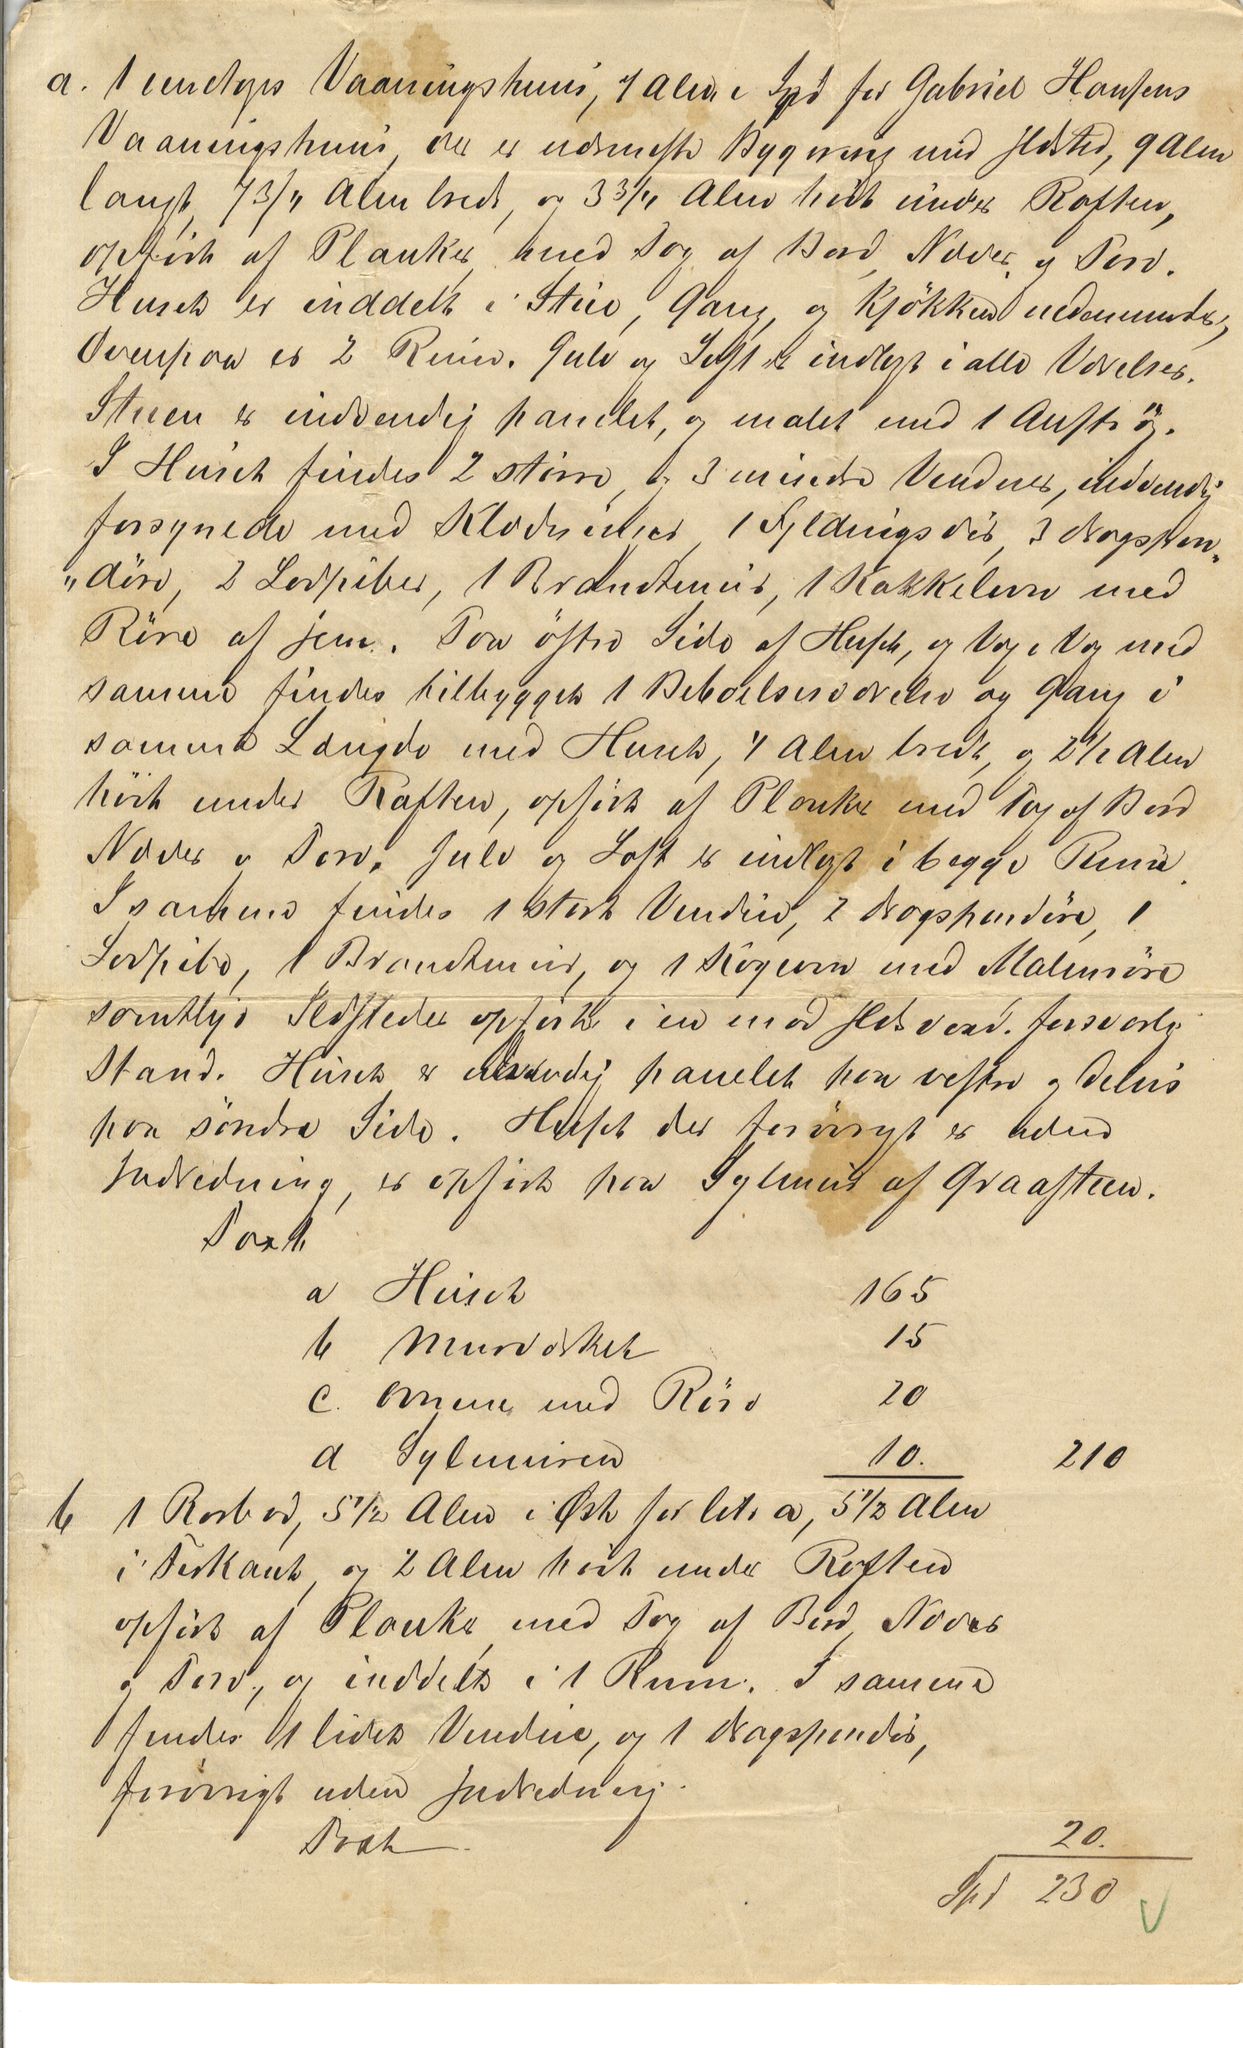 a. 1 eenetages Vaaningshuus, 4 Alen i Syd for Gabriel Hansens
Vaaningshuus, der er nærmeste Bygning med Ildsted, 9 Alen
langt, 7 3/4 Alen bredt, og 3 3/4 Alen høit under Raften,
opført af Planker, med Tag af Bord, Næver, og Torv.
Huset er inddelt i Stue, Gang, og Kjökken nedenunder,
Ovenpaa er 2 Rum. Gulv og Loft er indlagt i alle Værelser.
Stuen er indvendig panelet, og malet med 1 Anströg.
I Huset findes 2 större, og 3 mindre Vinduer, indvendig
forsynede med Klædninger, 1 Fyldingsdör, 3 dragspon-
"döre, 2 Lodpiber, 1 Brandmuur, 1 Kakkelovn med
Röre af jern. Paa östre Side af Huset, og Væg i Væg med
samme findes tilbygget 1 Beboelsesværelse og Gang i
samme Længde med Huset, 4 Alen bredt, og 2 1/2 Alen
höit under Raften, opført af Planker med Tag af Bord
Næver og Torv. Gulv og Loft er indlagt i begge Rum.
I samme findes 1 stort Vindue, 2 dragspondöre, 1
Lodpibe, 1 Brandmuur, og 1 Kogeovn med Malmröre
samtlige Ildsteder opført i en mod Ildsvaad. forsvarlig
Stand. Huset er udvendig panelet paa vestre og delvis
paa söndre Side. Huset der forövrigt er uden
Indredning, er opført paa Sylmuur af Graasteen.
Taxt
a Huset 165
b Murværket 15
c. Ovnene med Röre 20
d Sylmuren 10. 210
b 1 Rorbod, 5 1/2 Alen i Øst for litr a, 5 1/2 Alen
i Firkant, og 2 Alen höit under Raften
opført af Planker, med Tag af Bord, Næver
og Torv, og inddelt i 1 Rum. I samme
findes 1 lidet Vindue, og 1 dragspondör,
forövrigt uden Indredning.
Taxt 20.
Spd 230